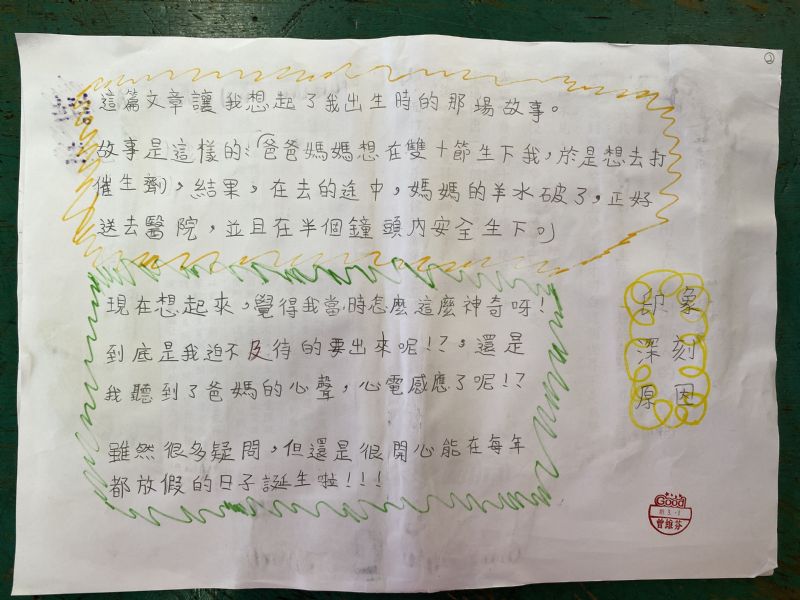 這篇文章讓我想起了我出生時的那場故事。
故事是這樣的:爸爸媽媽想在雙十節生下我,於是想去打
催生劑,結果,在去的途中,媽媽的羊水破了,正好
送去醫院,並且在半個鐘頭內安全生下
現在想起來,覺得我當時怎麼這麼神奇呀!
到底是我迫不及待的要出來呢!?,還是
我聽到了爸媽的心聲,心電感應了呢!?
雖然很多疑問,但還是很開心能在每年
都放假的日子誕生啦!!!
印象
深刻
原因
Good
曾維芬